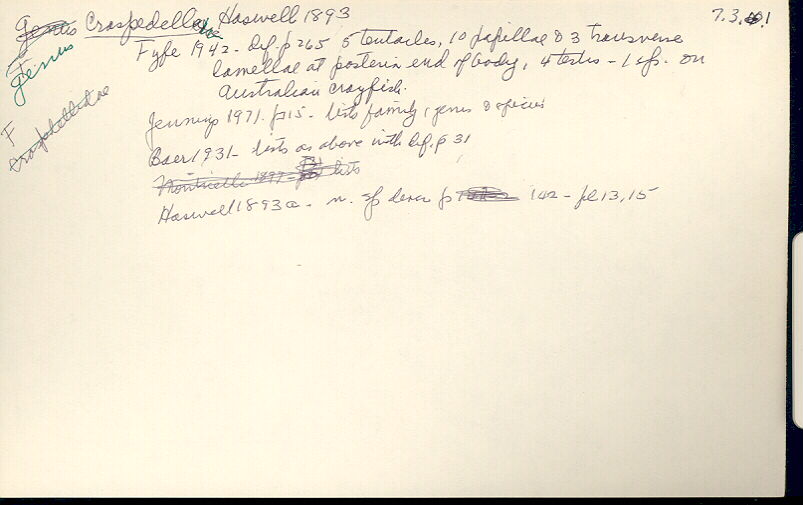 Genus Craspedella Haswell 1893 7.3.1
Genus
Fyfe 1942 - def. p 265 5 tentacles, 10 papillae & 3 transverse
lamellae at posterior end of body, 4 testes - 1 sp. on
Australian crayfish.
F
Craspedellidae
Jennings 1971. p15 - lists family, genus & species
Baer 1931 - lists as above with def. p 31
Monticelli 1899 - lists
Haswell 1893a - n. sp descr p 142 - pl 13, 15